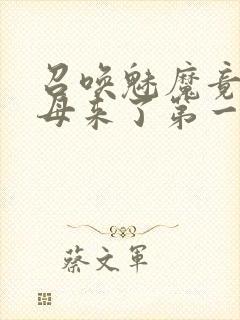 召唤魅魔竟
母来了第一
蔡文軍